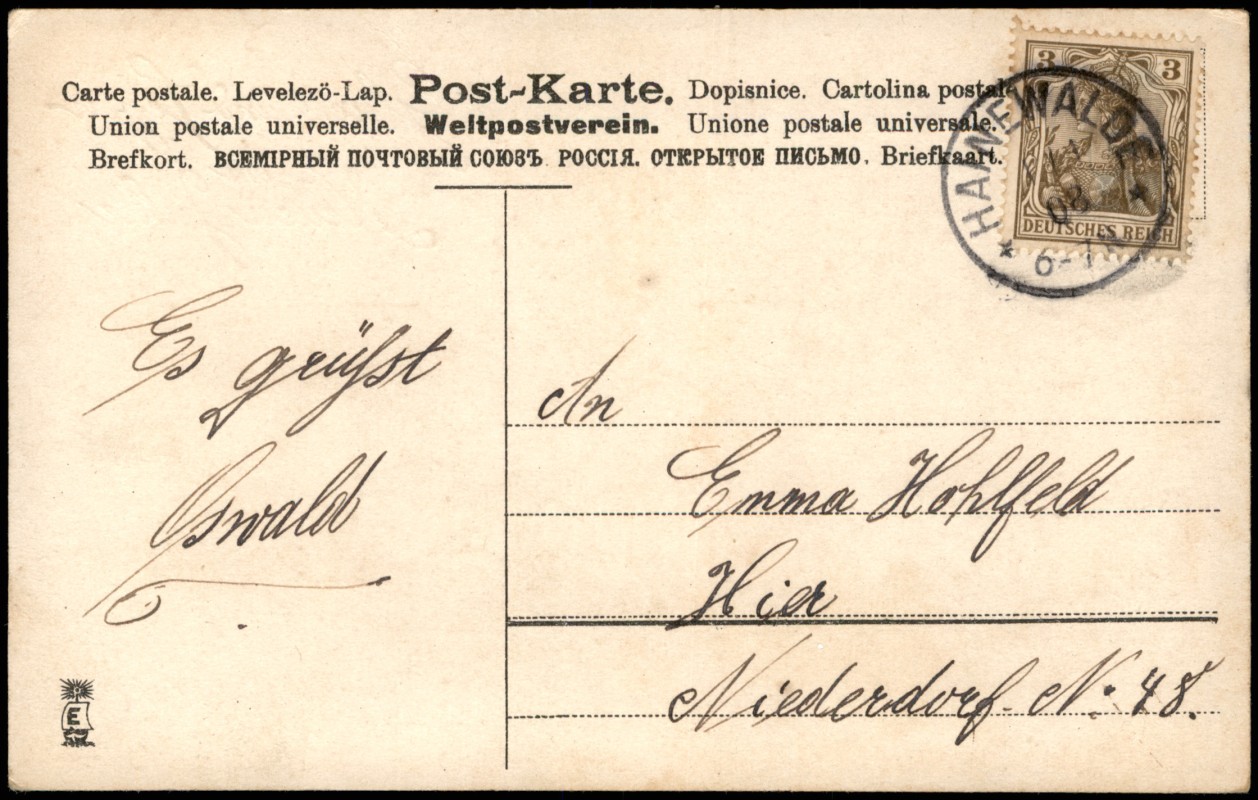 Carte postale. Levelezö-Lap. Post-Karte. Dopisnice. Cartolina postale
Union postale universelle. Weltpostverein. Unione postale universale.
Brefkort. ВСЕМІРНЫЙ ПОЧТОВЫЙ СОЮЗЪ. РОССІЯ. ОТКРЫТОЕ ПИСЬМО. Briefkaart.
3 3
DEUTSCHES REICH
* HAINEWALDE *
08
6-7N
Es grüßt
Oswald
An
Emma Hohlfeld
Hier
Niederdorf. No. 48.
E